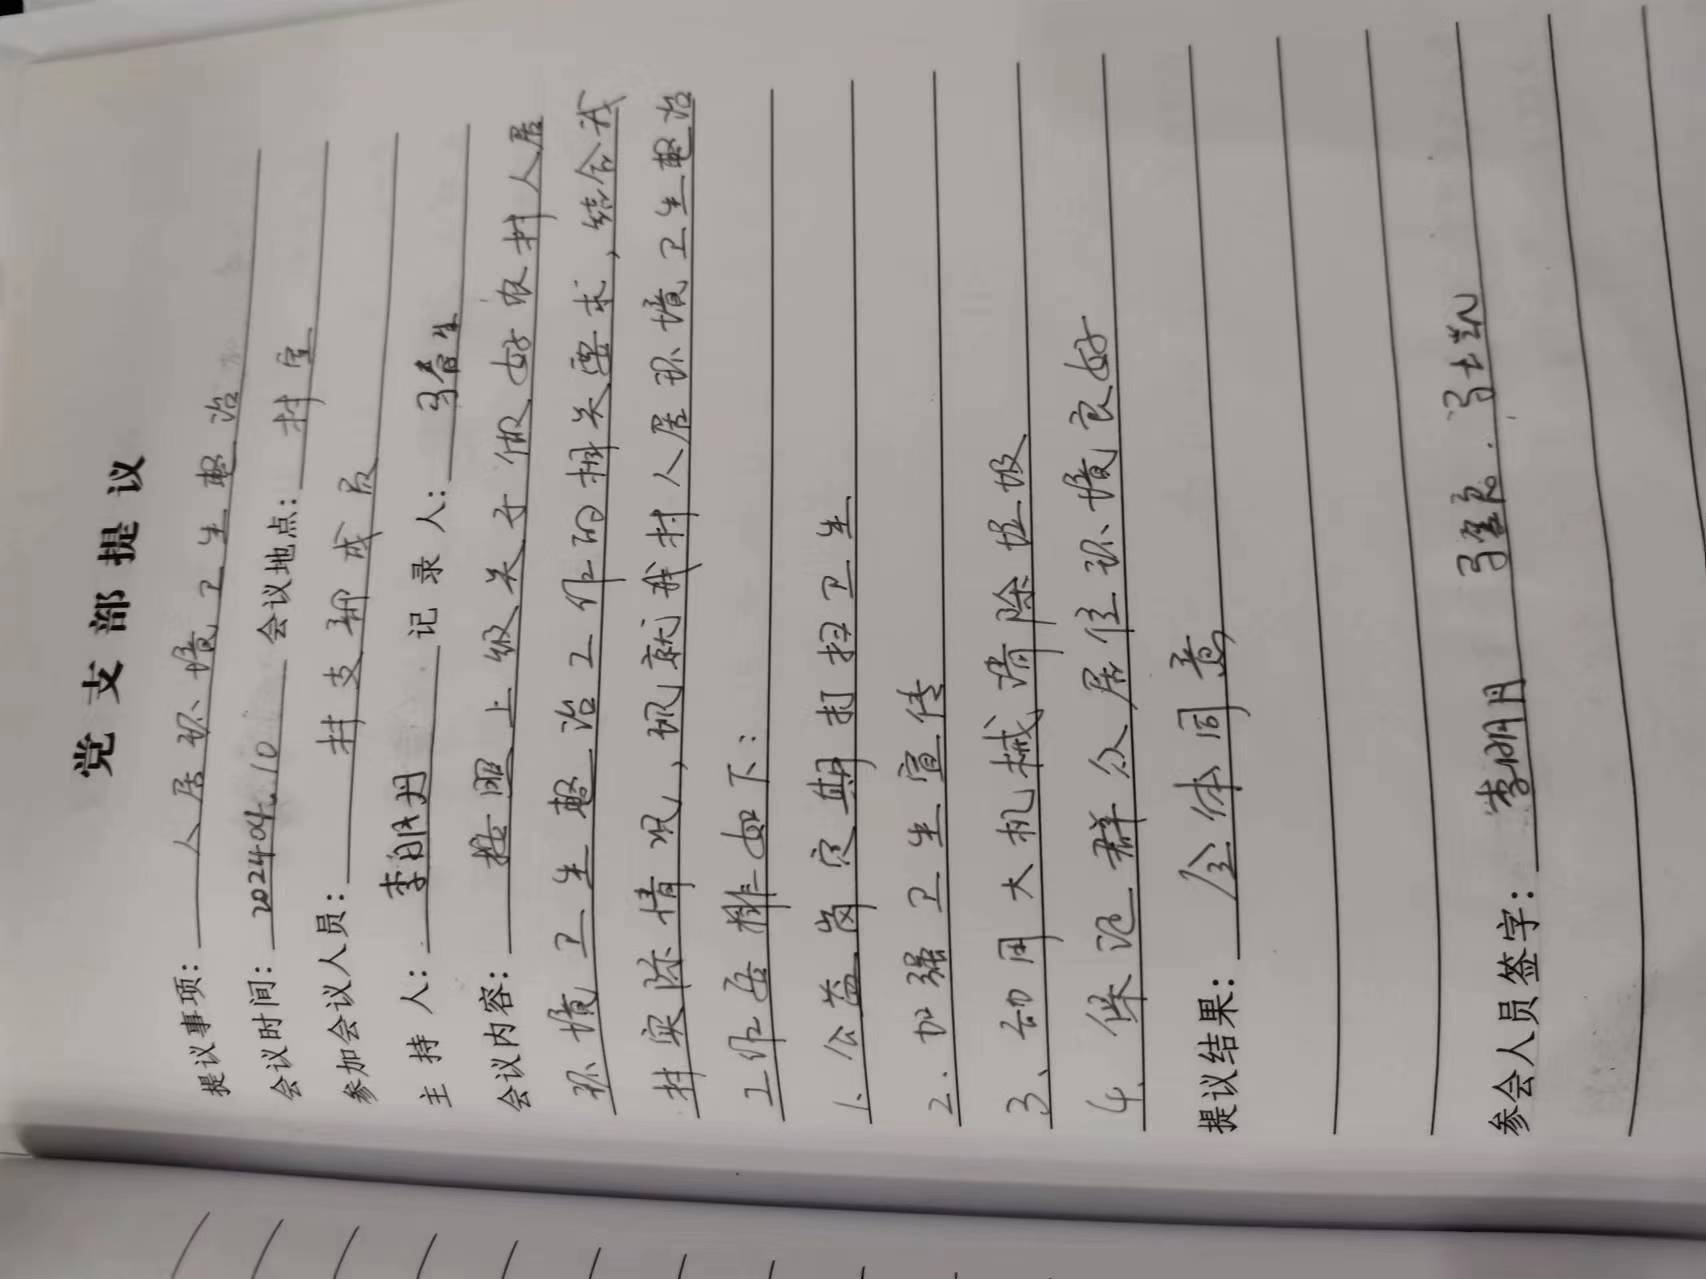 党支部提议
提议事项：人居环境卫生整治
会议时间：2024.04.10 会议地点：村室
参加会议人员：村支部成员
主持人：李明丹 记录人：马春生
会议内容：按照上级关于做好农村人居
环境卫生整治工作的相关要求，结合我
村实际情况，现就我村人居环境卫生整治
工作安排如下：
1、公益岗定期打扫卫生
2、加强卫生宣传
3、动用大机械清除垃圾
4、保证群众居住环境良好
提议结果：全体同意
参会人员签字：李明丹